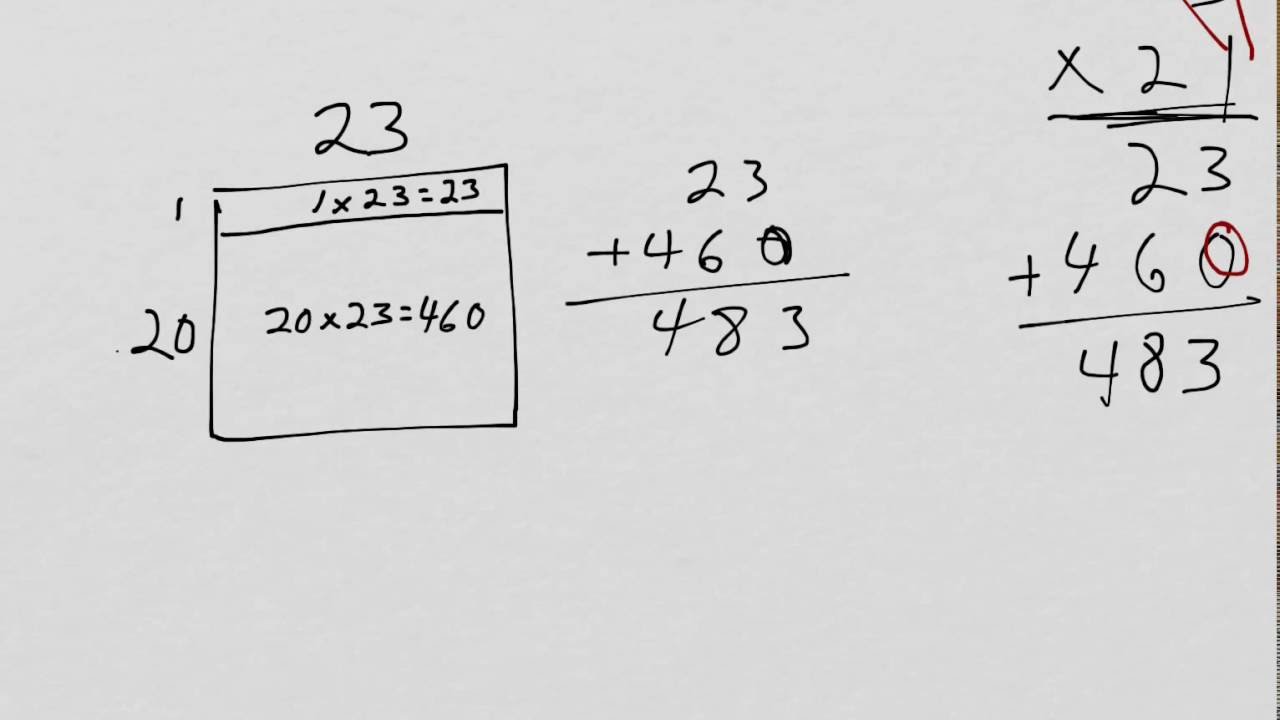 23
1
1 x 23 = 23
20
20 x 23 = 460
23
+ 460
483
x 21
23
+ 460
483